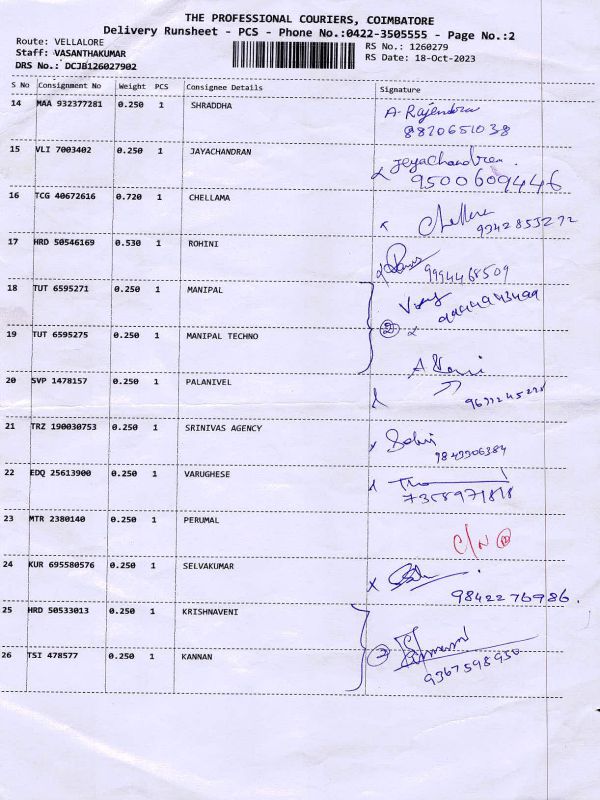 THE PROFESSIONAL COURIERS, COIMBATORE
Delivery Runsheet - PCS - Phone No.:0422-3505555 - Page No.:2
Route: VELLALORE
Staff: VASANTHAKUMAR
DRS No.: DCJB126027902
RS No.: 1260279
RS Date: 18-Oct-2023
S No Consignment No Weight PCS Consignee Details Signature
14 MAA 932377281 0.250 1 SHRADDHA A. Rajendra
8870651038
15 VLI 7003402 0.250 1 JAYACHANDRAN Jeyachandran.
9500609446
16 TCG 40672616 0.720 1 CHELLAMA
17 HRD 50546169 0.530 1 ROHINI
9994468509
18 TUT 6595271 0.250 1 MANIPAL
19 TUT 6595275 0.250 1 MANIPAL TECHNO
2
20 SVP 1478157 0.250 1 PALANIVEL
21 TRZ 190030753 0.250 1 SRINIVAS AGENCY
22 EDQ 25613900 0.250 1 VARUGHESE
7358971818
23 MTR 2380140 0.250 1 PERUMAL C/N
24 KUR 695580576 0.250 1 SELVAKUMAR
9842276986.
25 HRD 50533013 0.250 1 KRISHNAVENI
26 TSI 478577 0.250 1 KANNAN
9367598950